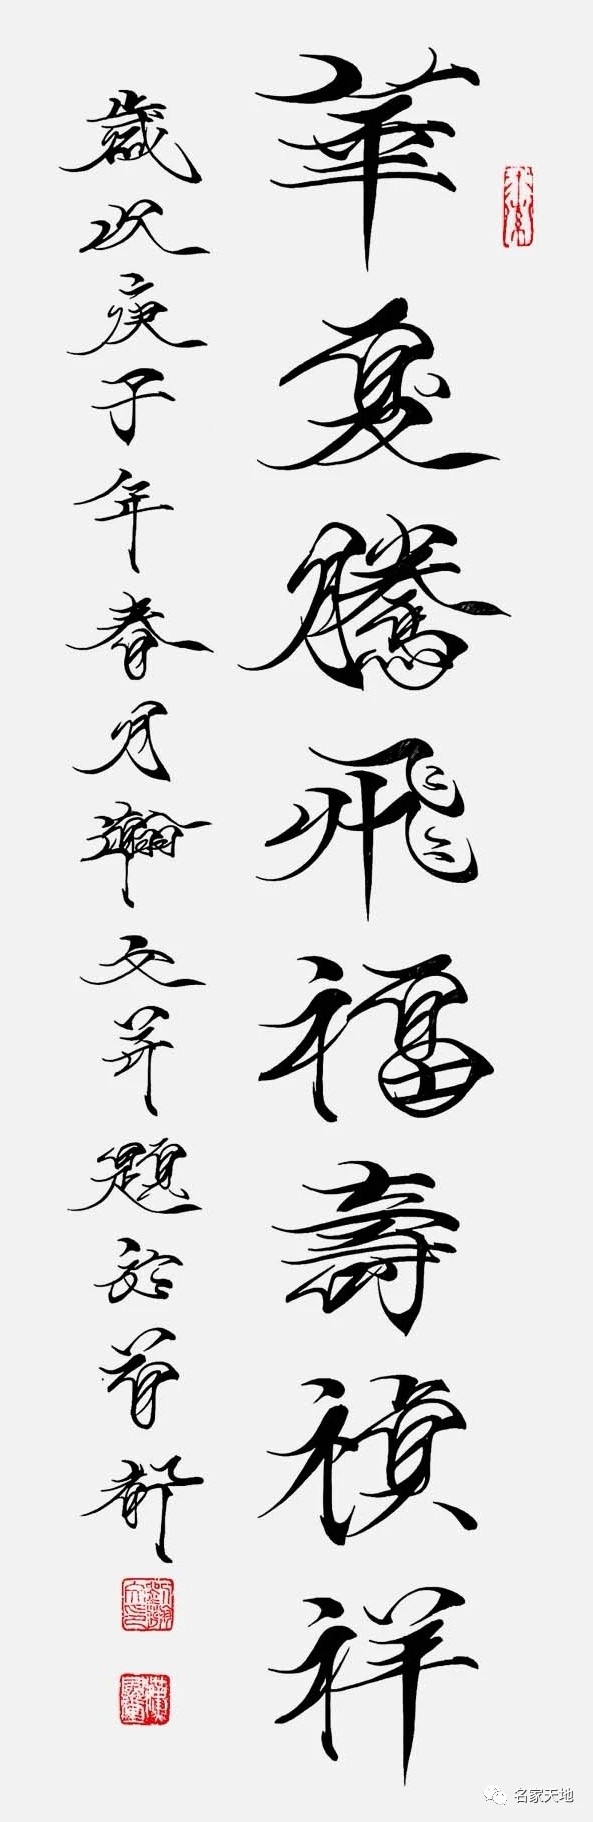 華夏騰飛福壽禎祥
歲次庚子年春月瀚文并題於首都
名家天地